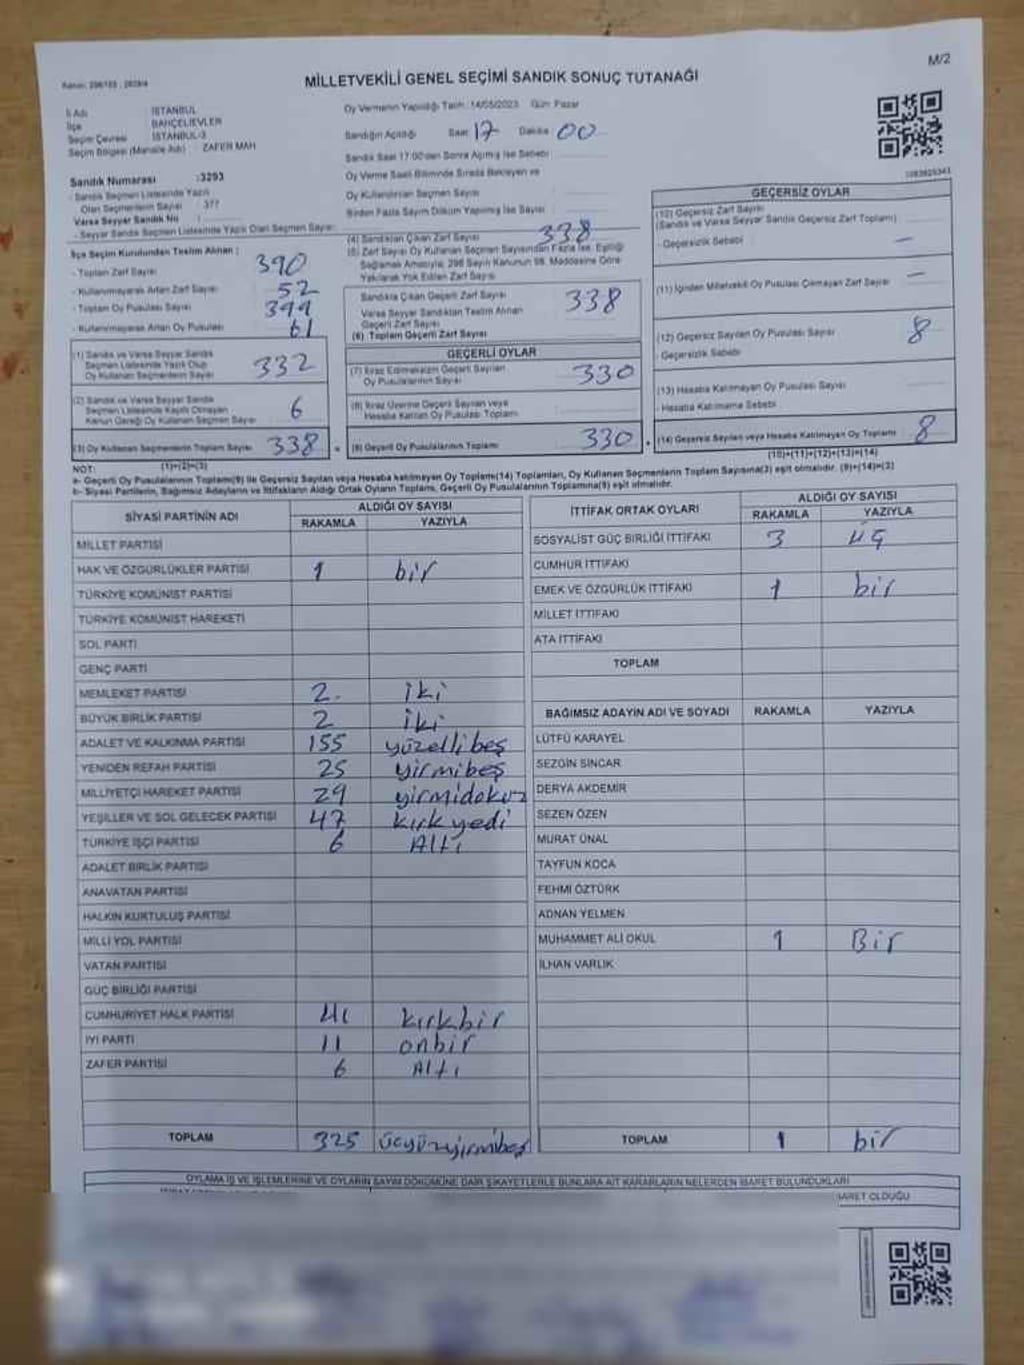 M/2
MİLLETVEKİLİ GENEL SEÇİMİ SANDIK SONUÇ TUTANAĞI
İl Adı : İSTANBUL
İlçe : BAHÇELİEVLER
Seçim Çevresi : İSTANBUL-3
Seçim Bölgesi (Mahalle Adı) : ZAFER MAH
Sandık Numarası :3293
- Sandık Seçmen Listesinde Yazılı
Olan Seçmenlerin Sayısı : 377
Varsa Seyyar Sandık No :
- Seyyar Sandık Seçmen Listesinde Yazılı Olan Seçmen Sayısı:
Oy Vermenin Yapıldığı Tarih :14/05/2023 Gün Pazar
Sandığın Açıldığı Saat 17 Dakika 00
Sandık Saat 17:00'den Sonra Açılmış İse Sebebi
Oy Verme Saati Bitiminde Sırada Bekleyen ve
Oy Kullandırılan Seçmen Sayısı
Birden Fazla Sayım Döküm Yapılmış İse Sayısı
İlçe Seçim Kurulundan Teslim Alınan :
- Toplam Zarf Sayısı 390
- Kullanılmayarak Artan Zarf Sayısı 52
- Toplam Oy Pusulası Sayısı 399
- Kullanılmayarak Artan Oy Pusulası 61
(1) Sandık ve Varsa Seyyar Sandık
Seçmen Listesinde Yazılı Olup
Oy Kullanan Seçmenlerin Sayısı 332
(2) Sandık ve Varsa Seyyar Sandık
Seçmen Listesinde Kayıtlı Olmayan
Kanun Gereği Oy Kullanan Seçmen Sayısı 6
(3) Oy Kullanan Seçmenlerin Toplam Sayısı 338 =
(1)+(2)=(3)
(4) Sandıktan Çıkan Zarf Sayısı 338
(5) Zarf Sayısı Oy Kullanan Seçmen Sayısından Fazla İse, Eşitliği
Sağlamak Amacıyla, 298 Sayılı Kanunun 98. Maddesine Göre
Yakılarak Yok Edilen Zarf Sayısı
Sandıkta Çıkan Geçerli Zarf Sayısı 338
Varsa Seyyar Sandıktan Teslim Alınan
Geçerli Zarf Sayısı
(6) Toplam Geçerli Zarf Sayısı
GEÇERLİ OYLAR
(7) İtiraz Edilmeksizin Geçerli Sayılan
Oy Pusulalarının Sayısı 330
(8) İtiraz Üzerine Geçerli Sayılan veya
Hesaba Katılan Oy Pusulası Toplamı
(9) Geçerli Oy Pusulalarının Toplamı 330 +
GEÇERSİZ OYLAR
(10) Geçersiz Zarf Sayısı
(Sandık ve Varsa Seyyar Sandık Geçersiz Zarf Toplamı)
- Geçersizlik Sebebi —
(11) İçinden Milletvekili Oy Pusulası Çıkmayan Zarf Sayısı —
(12) Geçersiz Sayılan Oy Pusulası Sayısı 8
- Geçersizlik Sebebi
(13) Hesaba Katılmayan Oy Pusulası Sayısı
- Hesaba Katılmama Sebebi
(14) Geçersiz Sayılan veya Hesaba Katılmayan Oy Toplamı 8
(10)+(11)+(12)+(13)=(14)
NOT:
a- Geçerli Oy Pusulalarının Toplamı(9) ile Geçersiz Sayılan veya Hesaba katılmayan Oy Toplamı(14) Toplamları, Oy Kullanan Seçmenlerin Toplam Sayısına(3) eşit olmalıdır. (9)+(14)=(3)
b- Siyasi Partilerin, Bağımsız Adayların ve İttifakların Aldığı Ortak Oyların Toplamı, Geçerli Oy Pusulalarının Toplamına(9) eşit olmalıdır.
SİYASİ PARTİNİN ADI ALDIĞI OY SAYISI
RAKAMLA YAZIYLA
MİLLET PARTİSİ
HAK VE ÖZGÜRLÜKLER PARTİSİ 1 bir
TÜRKİYE KOMÜNİST PARTİSİ
TÜRKİYE KOMÜNİST HAREKETİ
SOL PARTİ
GENÇ PARTİ
MEMLEKET PARTİSİ 2. iki
BÜYÜK BİRLİK PARTİSİ 2 iki
ADALET VE KALKINMA PARTİSİ 155 yüzellibeş
YENİDEN REFAH PARTİSİ 25 yirmibeş
MİLLİYETÇİ HAREKET PARTİSİ 29 yirmidokuz
YEŞİLLER VE SOL GELECEK PARTİSİ 47 kırkyedi
TÜRKİYE İŞÇİ PARTİSİ 6 Altı
ADALET BİRLİK PARTİSİ
ANAVATAN PARTİSİ
HALKIN KURTULUŞ PARTİSİ
MİLLİ YOL PARTİSİ
VATAN PARTİSİ
GÜÇ BİRLİĞİ PARTİSİ
CUMHURİYET HALK PARTİSİ 41 kırkbir
İYİ PARTİ 11 onbir
ZAFER PARTİSİ 6 Altı
TOPLAM 325 üçyüzyirmibeş
İTTİFAK ORTAK OYLARI ALDIĞI OY SAYISI
RAKAMLA YAZIYLA
SOSYALİST GÜÇ BİRLİĞİ İTTİFAKI 3 üç
CUMHUR İTTİFAKI
EMEK VE ÖZGÜRLÜK İTTİFAKI 1 bir
MİLLET İTTİFAKI
ATA İTTİFAKI
TOPLAM
BAĞIMSIZ ADAYIN ADI VE SOYADI RAKAMLA YAZIYLA
LÜTFÜ KARAYEL
SEZGİN SİNCAR
DERYA AKDEMİR
SEZEN ÖZEN
MURAT ÜNAL
TAYFUN KOCA
FEHMİ ÖZTÜRK
ADNAN YELMEN
MUHAMMET ALİ OKUL 1 Bir
İLHAN VARLIK
TOPLAM 1 bir
OYLAMA İŞ VE İŞLEMLERİNE VE OYLARIN SAYIM DÖKÜMÜNE DAİR ŞİKAYETLERLE BUNLARA AİT KARARLARIN NELERDEN İBARET BULUNDUKLARI
OLDUĞU